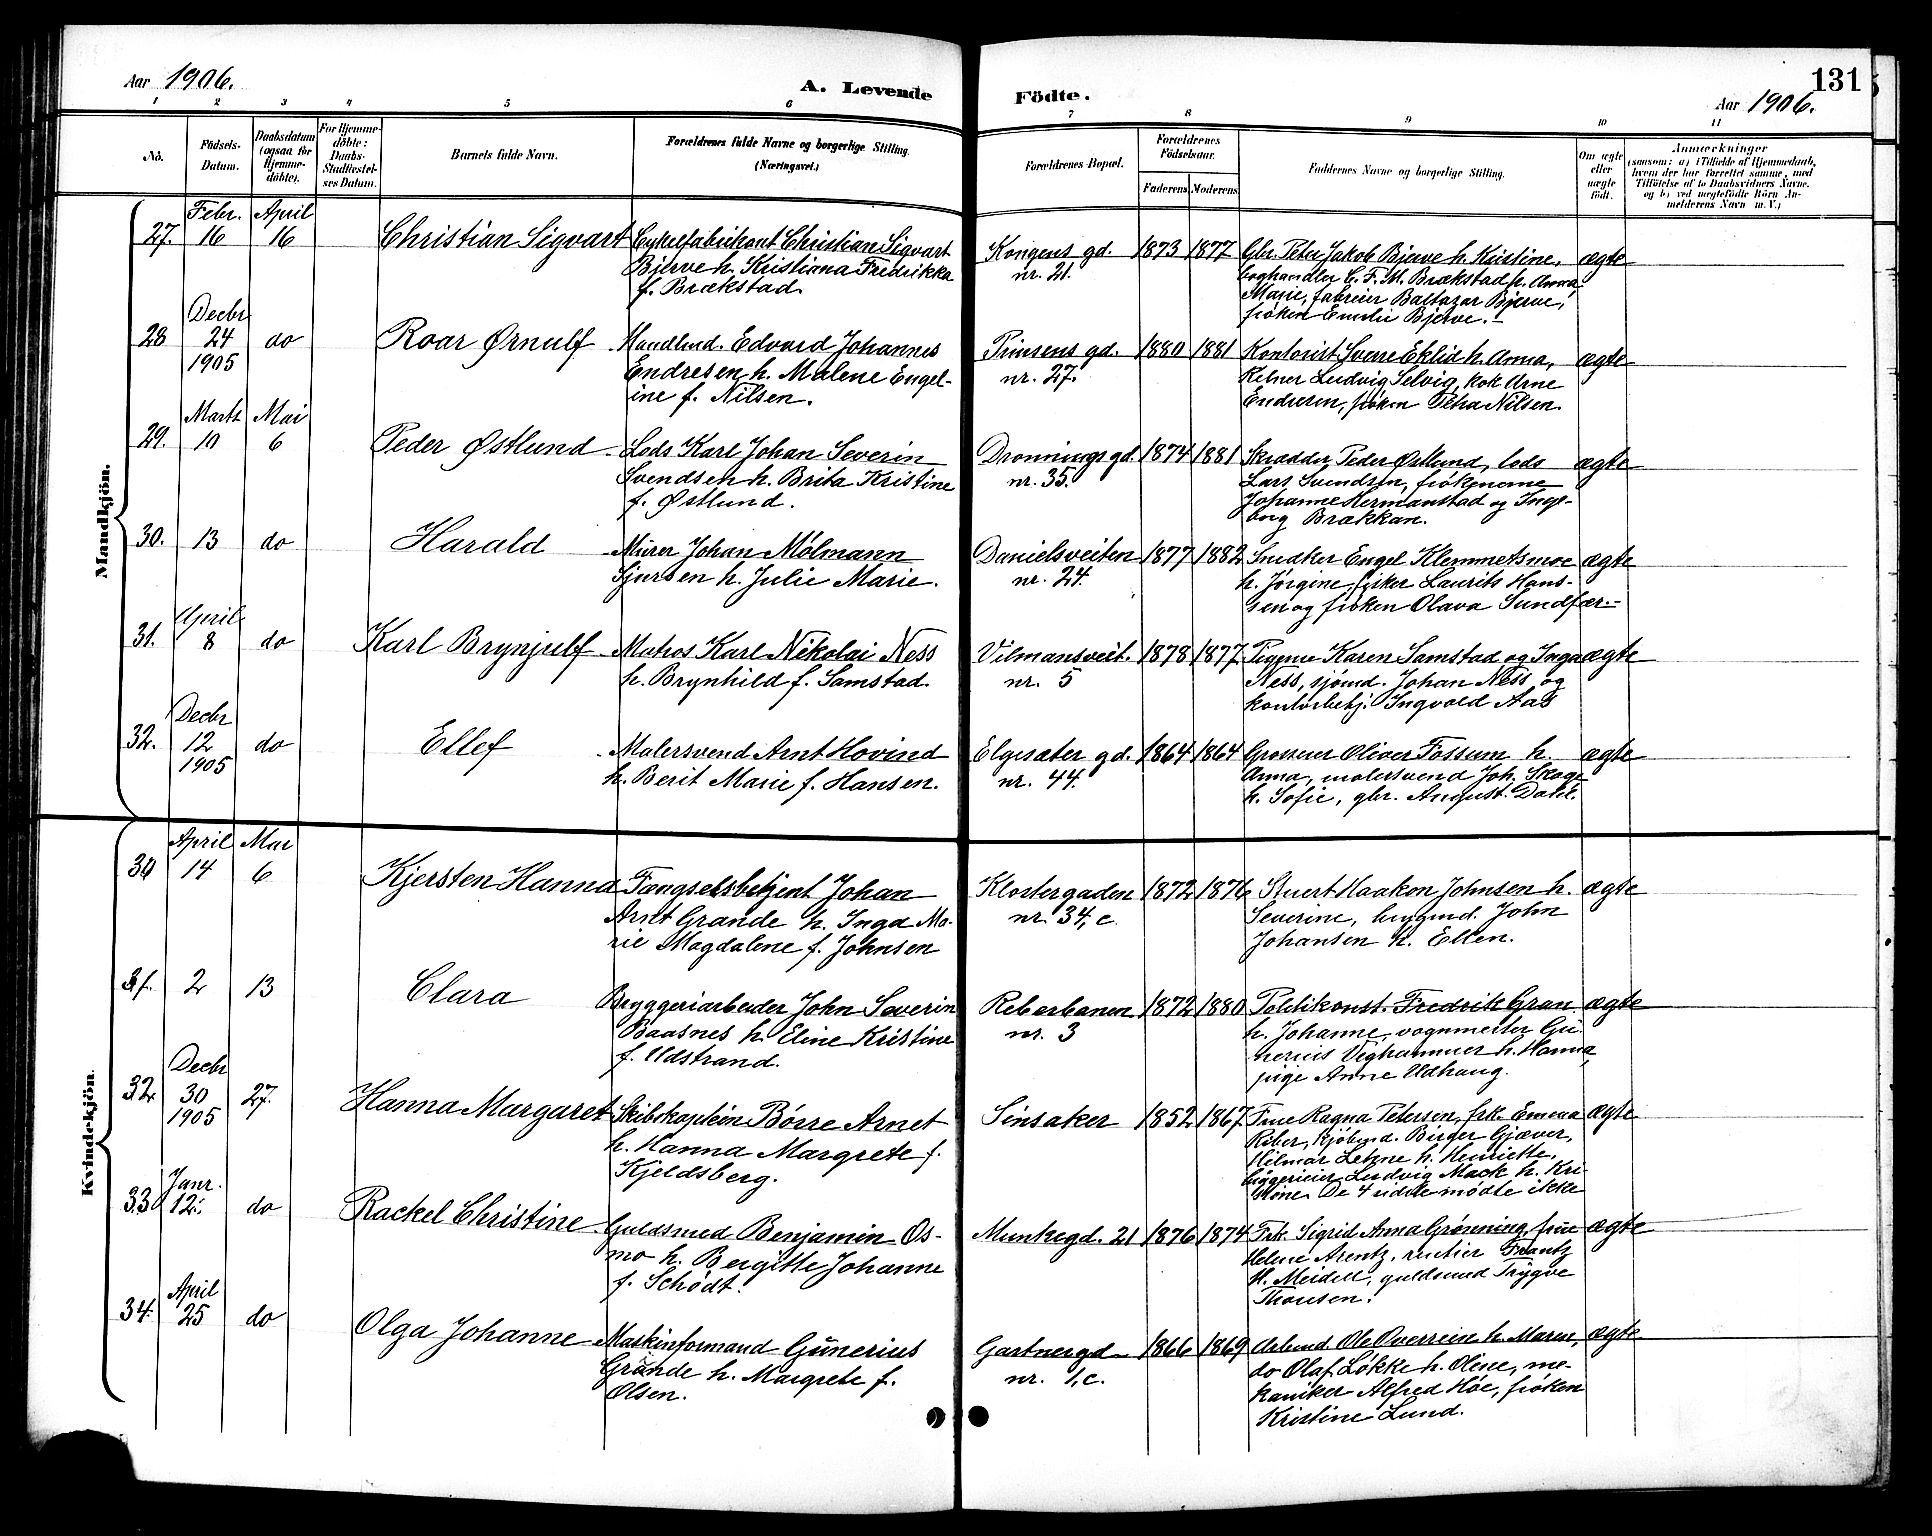 Aar 1906.
A. Levende
Födte.
131
Aar 1906.
1 2 3 4 5 6 7 8 9 10 11
No.
Födsels-
Datum.
Daabsdatum
(ogsaa for
Hjemme-
döbte).
For Hjemme-
döbte:
Daabs-
Stadfæstel-
ses Datum.
Barnets fulde Navn.
Forældrenes fulde Navne og borgerlige Stilling.
(Næringsvei.)
Forældrenes Bopæl.
Forældrenes
Födselsaar.
Faderens Moderens
Faddernes Navne og borgerlige Stilling.
Om ægte
eller
uægte
födt.
Anmærkninger
(saasom: a) i Tilfælde af Hjemmedaab,
hvem der har forrettet samme, med
Tilföielse af to Daabsvidners Navne.
og b) ved uægtefödte Börn An-
melderens Navn m. V.)
Mandkjön.
27. Febr. 16
April 16
Christian Sigvart
Cykelfabrikant Christian Sigvart
Bjerve h. Kristiana Fredrikke
f. Brækstad.
Kongens gd.
nr. 21.
1873 1877
Gbr. Peter Jakob Bjerve h. Kristine,
boghandler C. F. M. Brækstad h. Anna
Marie, fabreier Baltazar Bjerve,
frøken Emilie Bjerve.
ægte
28 Decbr 24 1905
do
Roar Ørnulf
Handlmd. Edvard Johannes
Endresen h. Malene Engel-
ine f. Nilsen.
Prinsens gd.
nr. 27.
1880 1881
Kontorist Sverre Eklid h. Anna,
Kelner Ludvig Selvig, kok Arne
Endresen, frøken Petra Nilsen.
ægte
29. Marts 10
Mai 6
Peder Østlund
Lods Karl Johan Severin
Svendsen h. Brita Kristine
f. Østlund.
Dronnings gd.
nr. 35.
1874 1881
Skrædder Peder Østlund, lods
Lars Svendsen, frøkenerne
Johanne Hermanstad og Inge-
borg Brækkan.
ægte
30. 13 do
Harald
Murer Johan Mølmann
Sjursen h. Julie Marie.
Danielsveiten
nr. 24.
1877 1882
Snedker Engel Klemmetsmoe
h. Jørgine, fisker Laurits Hans-
sen og frøken Olava Sundfær.
ægte
31. April 8 do
Karl Brynjulf
Matros Karl Nikolai Ness
h. Brynhild f. Samstad.
Vilmansveit.
nr. 5
1878 1877
Pigerne Karen Samstad og Inga
Ness, sjømd. Johan Ness og
kontorbetj. Ingvald Aas
ægte
32. Decbr 12 1905
do
Ellef
Malersvend Arnt Hovind
h. Berit Marie f. Hansen.
Elgesæter gd.
nr. 44.
1864 1864
Grosserer Oliver Fossum h.
Anna, malersvend Joh. Skage
h. Sofie, gbr. August Dahl.
ægte
Kvindekjön.
30 April 14
Mai 6
Kjersten Hanna
Fængselsbetjent Johan
Arnt Grande h. Inga Ma-
rie Magdalene f. Johnsen
Klostergaden
nr. 34, c
1872 1876
Stuert Haakon Johnsen h.
Severine, bygmd. John
Johansen h. Ellen.
ægte
31. 2 13
Clara
Bryggeriarbeider John Severin
Baasnes h. Eline Kristine
f. Udstrand.
Reberbanen
nr. 3
1872 1880
Politikonst. Fredrik Gran
h. Johanne, vognmester Gu-
nerius Veghammer h. Hanna,
pige Anne Udhaug.
ægte
32. Decbr 30 1905
27.
Hanna Margaret
Skibskaptein Børre Arnet
h. Hanna Margrete f.
Kjeldsberg.
Sinsaker
1852 1867
Frue Ragna Petersen, frk. Emma
Riber, kjøbmd. Birger Gjæver,
Hilmar Letzne h. Henriette,
byggerieier Ludvig Mack h. Kri-
stine. De 4 sidste mødte ikke
ægte
33 Janr. 12. do
Rackel Christine
Guldsmed Benjamin Os-
mo h. Bergitte Johanne
f. Schödt.
Munkegd. 21
1876 1874
Frk. Sigrid Anna Grønning, frue
Helene Arentz, rentier Frantz
H. Meidell, guldsmed Trygve
Thonsen.
ægte
34. April 25 do
Olga Johanne
Maskinformand Gunerius
Grande h. Margrete f.
Olsen.
Gartnergd
nr. 1, c.
1866 1869
Arbmd. Ole Overrein h. Maren,
do Olaf Løkke h. Oline, me-
kaniker Alfred Høe, frøken
Kristine Lund.
ægte